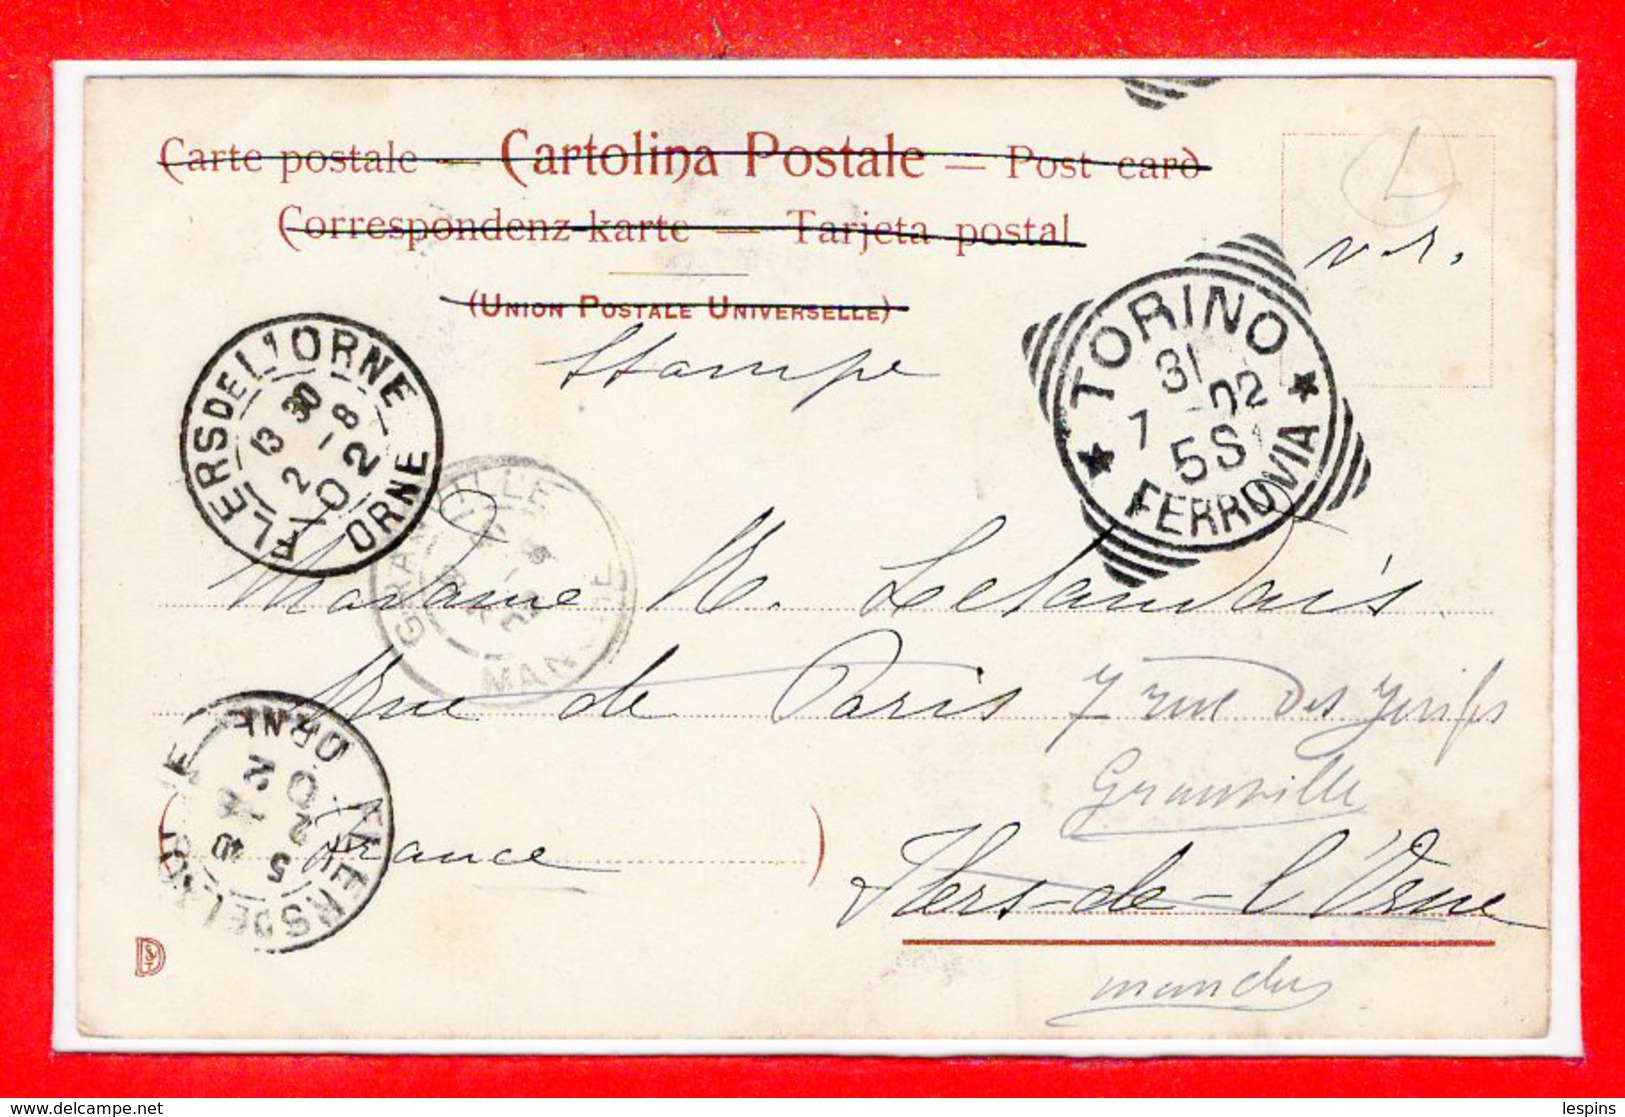 Carte postale — Cartolina Postale — Post card
Correspondenz-karte — Tarjeta postal
(UNION POSTALE UNIVERSELLE)
Stampe
L
TORINO
31
7 - 02
5S
FERROVIA
FLERS DE L'ORNE
13 30
2 - 8
02
ORNE
GRANVILLE
MANCHE
Madame M. Letandais
rue de Paris
7 rue des Juifs
Granville
France
Flers-de-l'Orne
manche
FLERS DE L'ORNE
ORNE
lespins